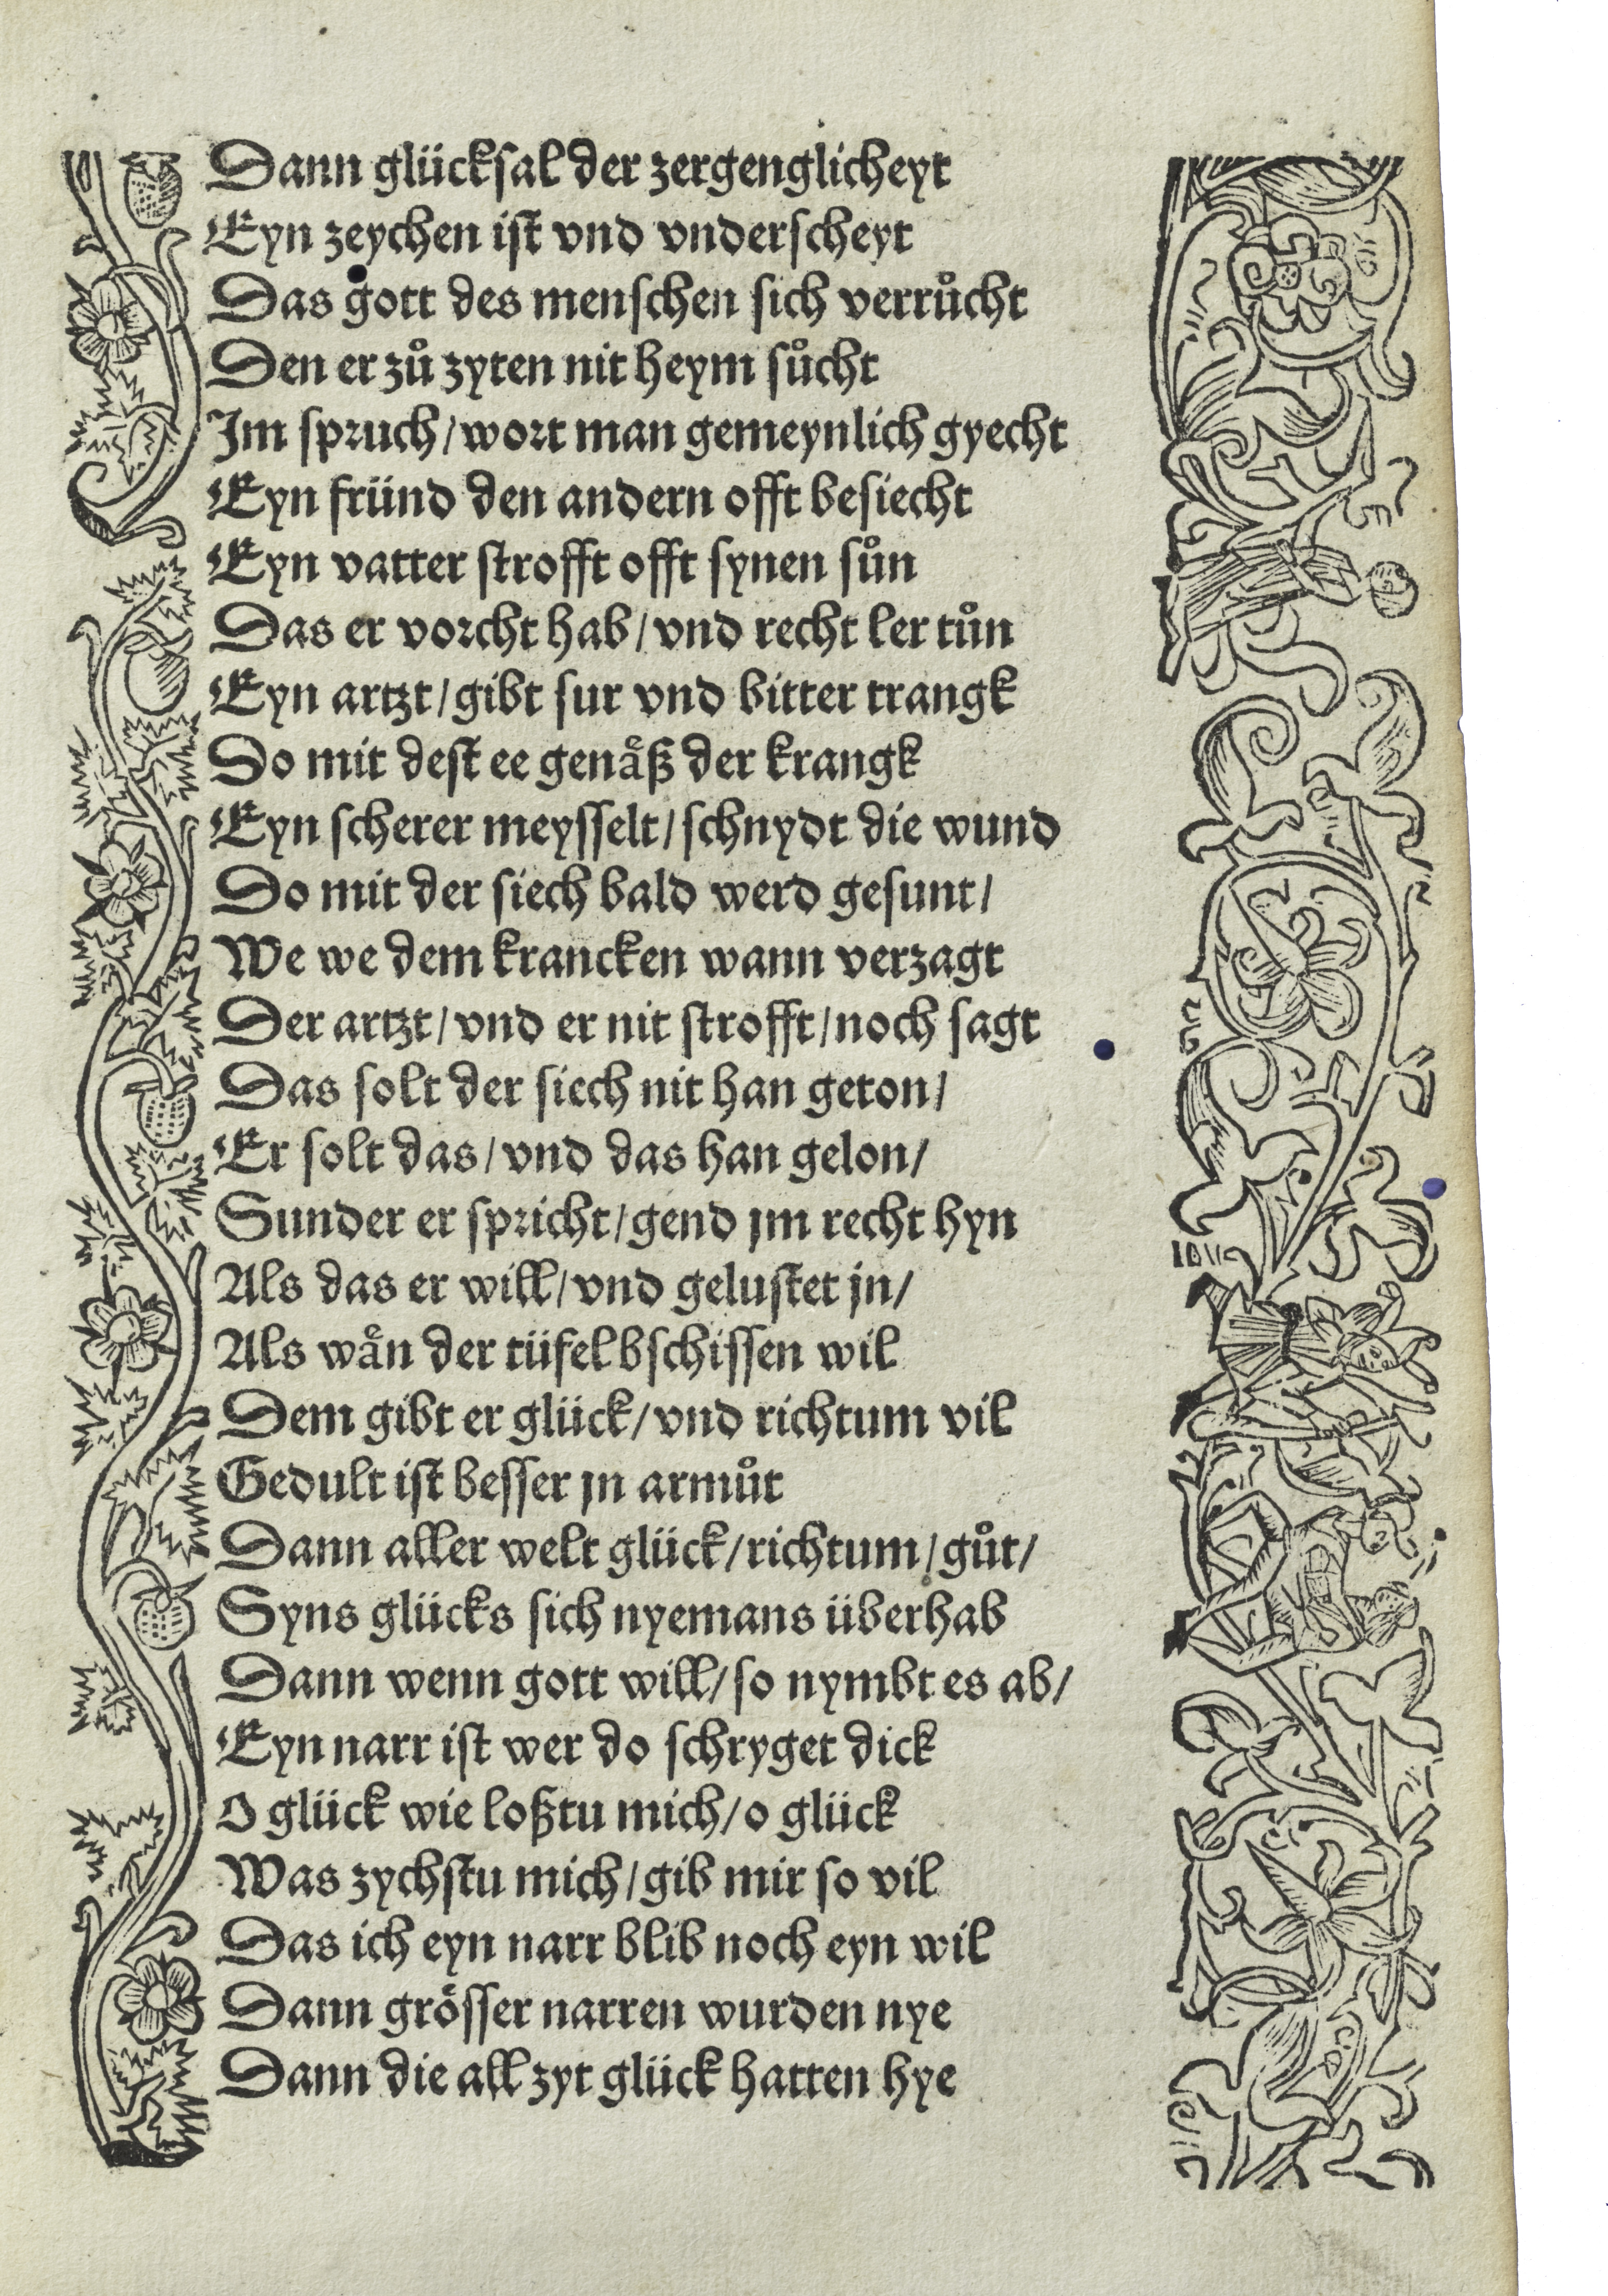 Dann glücksal der zergenglicheyt
Eyn zeychen ist vnd vnderscheyt
Das gott des menschen sich verrůcht
Den er zů zyten nit heym sůcht
Im spruch/wort man gemeynlich gyecht
Eyn fründ den andern offt besiecht
Eyn vatter strofft offt synen sůn
Das er vorcht hab/vnd recht ler tůn
Eyn artzt/gibt sur vnd bitter trangk
So mit dest ee genäß der krangk
Eyn scherer meysselt/schnydt die wund
So mit der siech bald werd gesunt/
We we dem krancken wann verzagt
Der artzt/vnd er nit strofft/noch sagt
Das solt der siech nit han geton/
Er solt das/vnd das han gelon/
Sunder er spricht/gend jm recht hyn
Als das er will/vnd gelustet jn/
Als wän der tüfel bschissen wil
Dem gibt er glück/vnd richtum vil
Gedult ist besser jn armůt
Dann aller welt glück/richtum/gůt/
Syns glücks sich nyemans überhab
Dann wenn gott will/so nymbt es ab/
Eyn narr ist wer do schryget dick
O glück wie loßtu mich/o glück
Was zychstu mich/gib mir so vil
Das ich eyn narr blib noch eyn wil
Dann grösser narren wurden nye
Dann die all zyt glück hatten hye